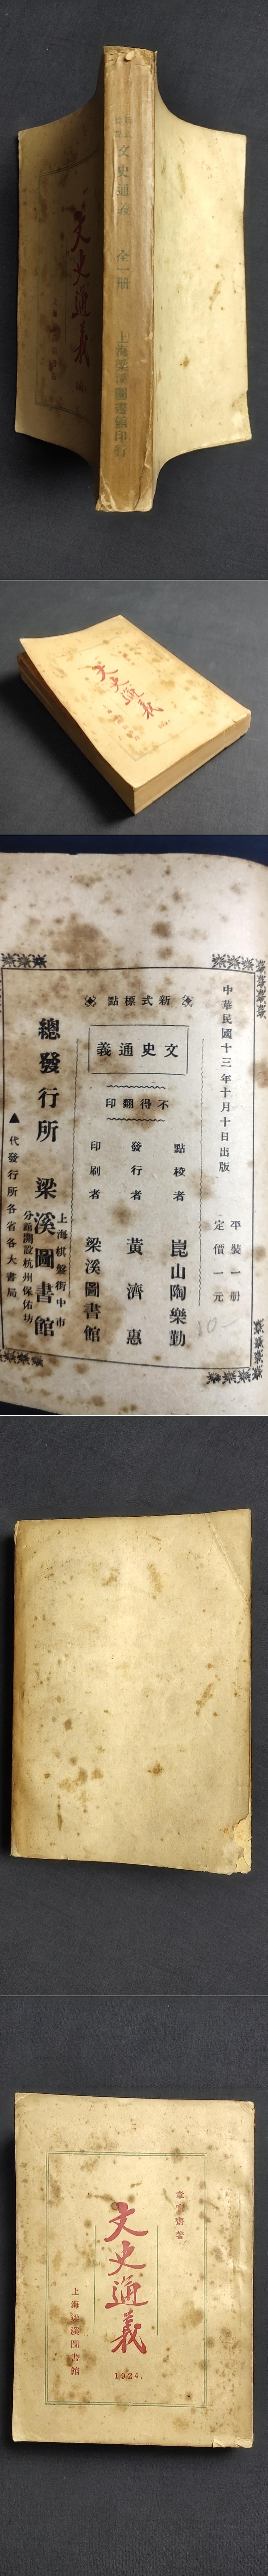 新式
標點
文史通義
全一冊
上海梁溪圖書館印行
文史通義
文史通義
1924.
中華民國十三年十月十日出版
平裝一冊
定價一元
新式標點
文史通義
不得翻印
點校者 崑山陶樂勤
發行者 黃濟惠
印刷者 梁溪圖書館
總發行所 梁溪圖書館
上海棋盤街中市
分館開設杭州保佑坊
▲代發行所各省各大書局
10-
章實齋著
文史通義
1924.
上海梁溪圖書館